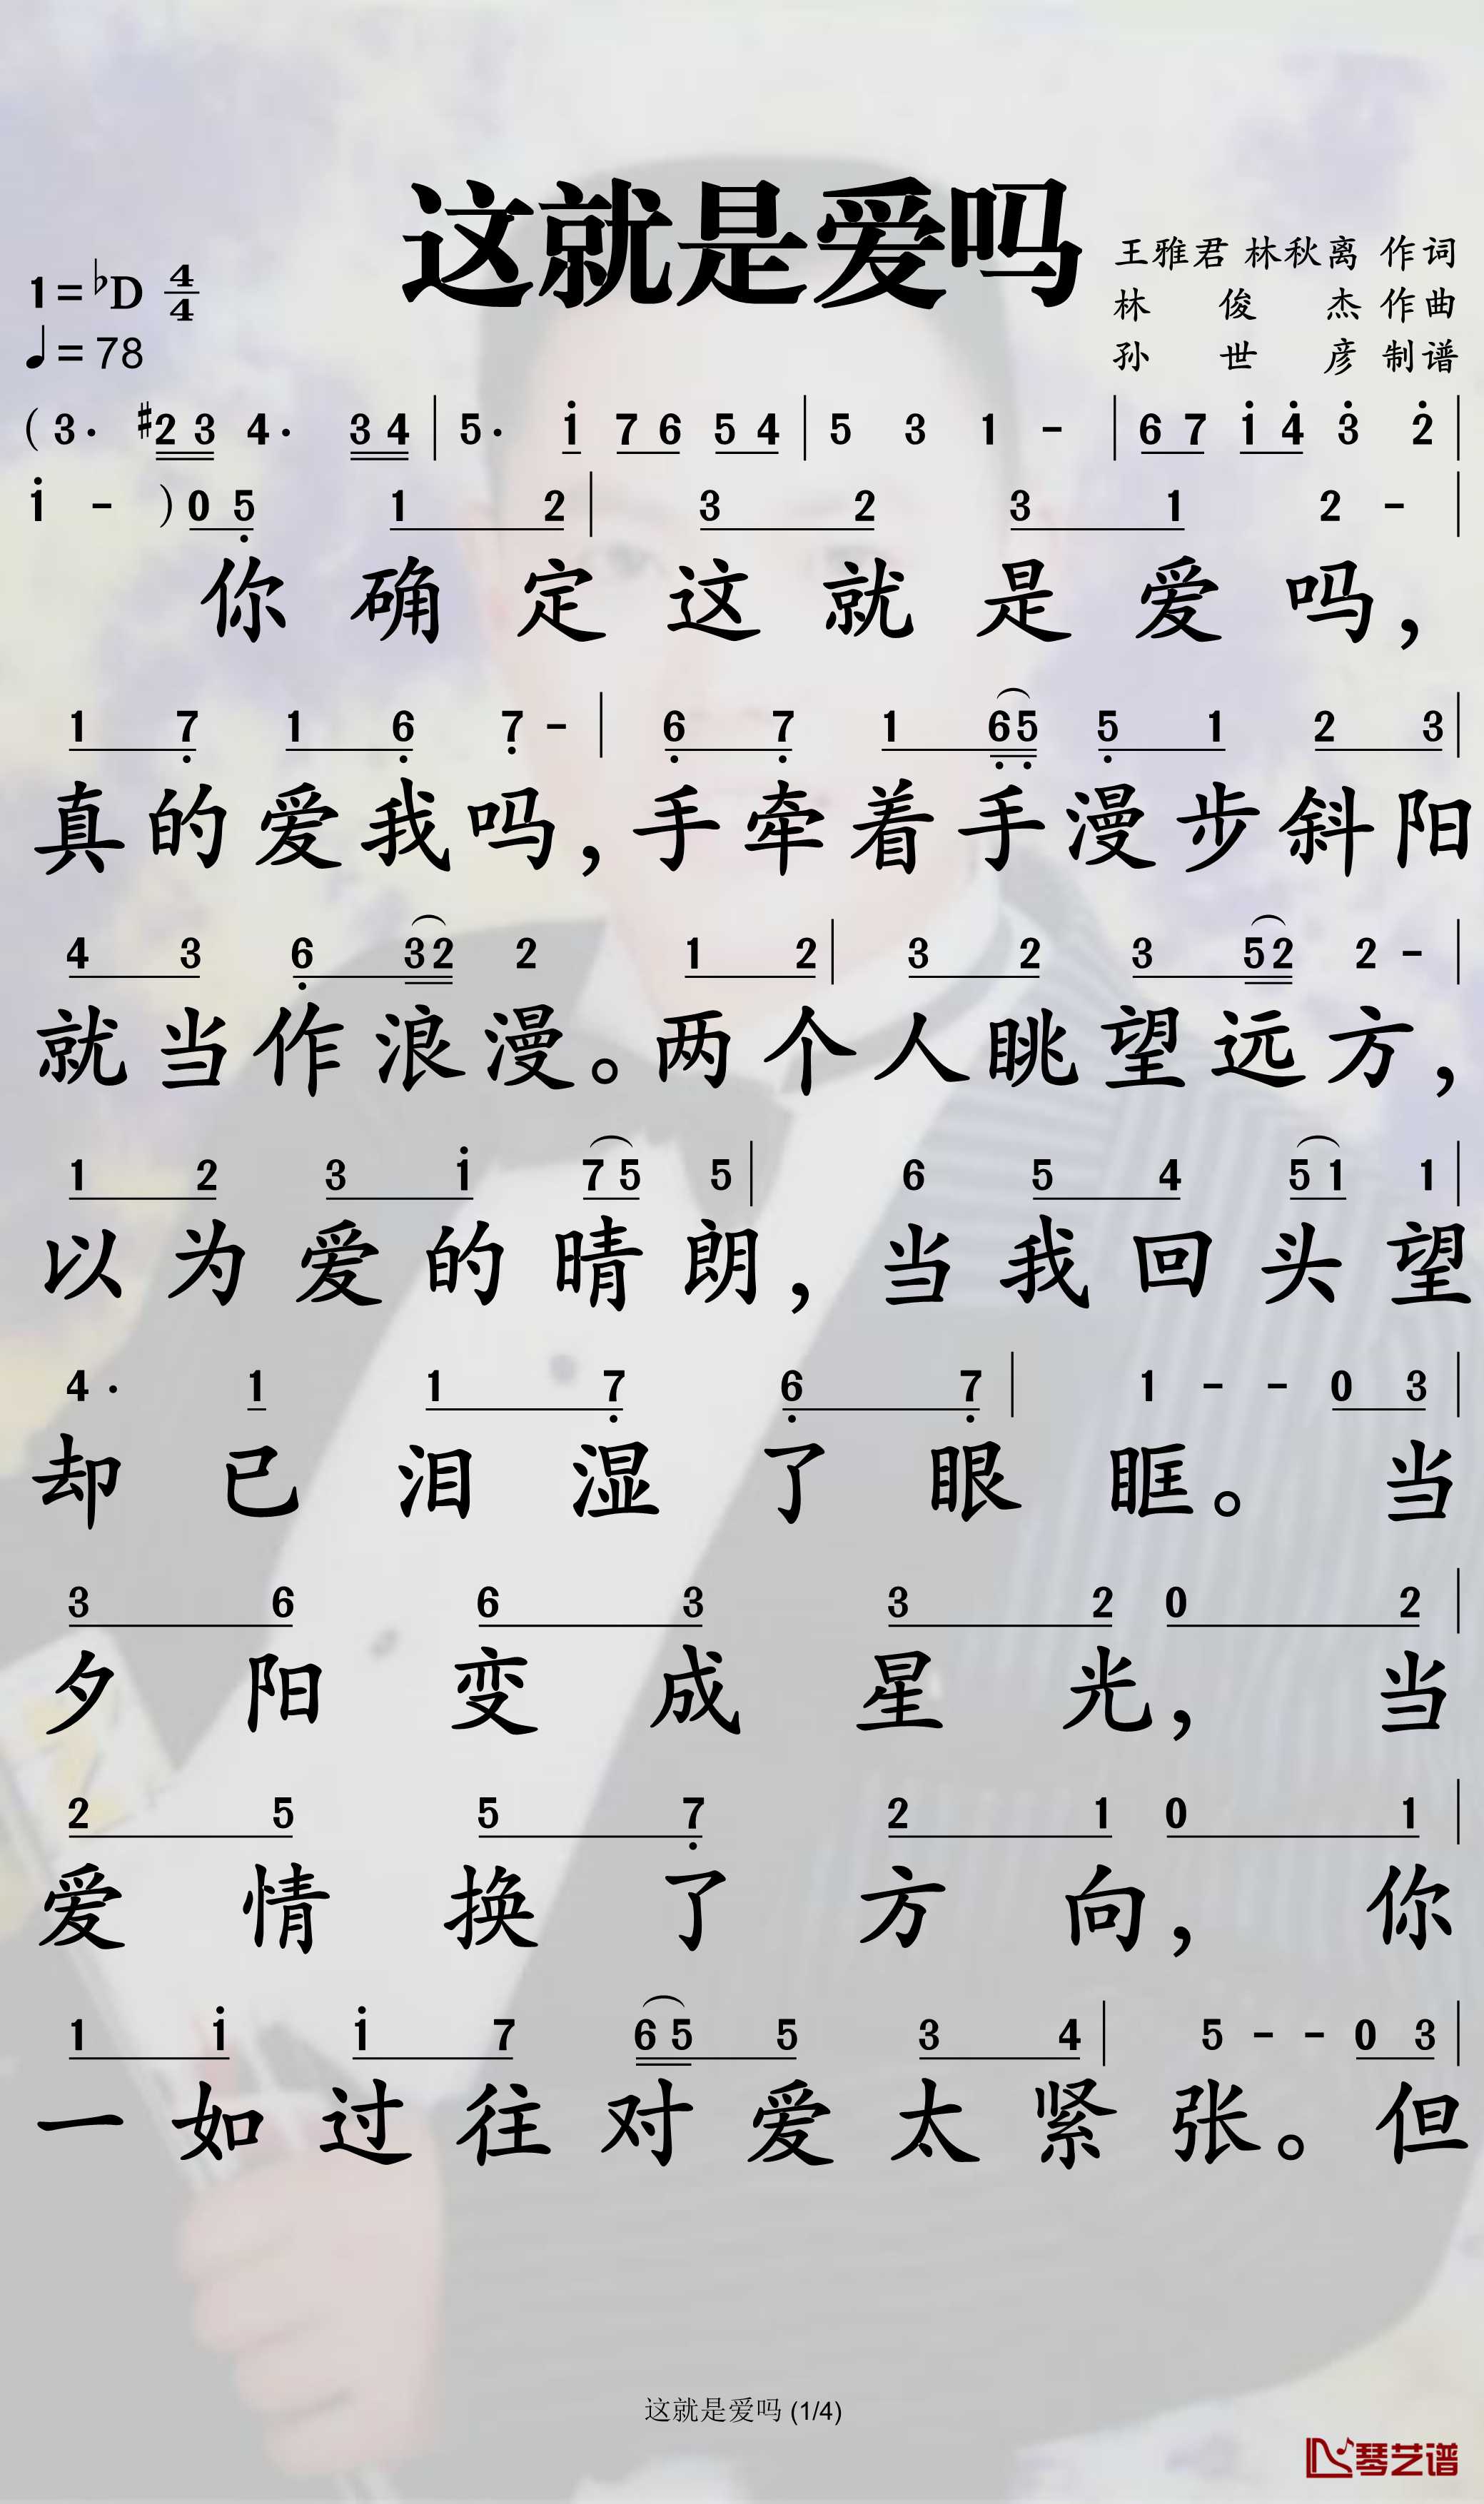 这就是爱吗
王雅君 林秋离 作词
林俊杰 作曲
孙世彦 制谱
1=♭D 4/4
♩=78
(3· #2 3 4· 3 4 | 5· i 7 6 5 4 | 5 3 1 - | 6 7 i 4̇ 3̇ 2̇ |
i - ) 0 5̣ 1 2 | 3 2 3 1 2 - |
你确定这就是爱吗，
1 7̣ 1 6̣ 7̣ - | 6̣ 7̣ 1 6̣5̣ 5̣ 1 2 3 |
真的爱我吗，手牵着手漫步斜阳
4 3 6̣ 32 2 1 2 | 3 2 3 52 2 - |
就当作浪漫。两个人眺望远方，
1 2 3 i 7 5 5 | 6 5 4 5 1 1 |
以为爱的晴朗，当我回头望
4· 1 1 7̣ 6̣ 7̣ | 1 - - 0 3 |
却已泪湿了眼眶。当
3 6 6 3 3 2 0 2 |
夕阳变成星光，当
2 5 5 7̣ 2 1 0 1 |
爱情换了方向，你
1 i i 7 6 5 5 3 4 | 5 - - 0 3 |
一如过往对爱太紧张。但
这就是爱吗 (1/4)
琴艺谱